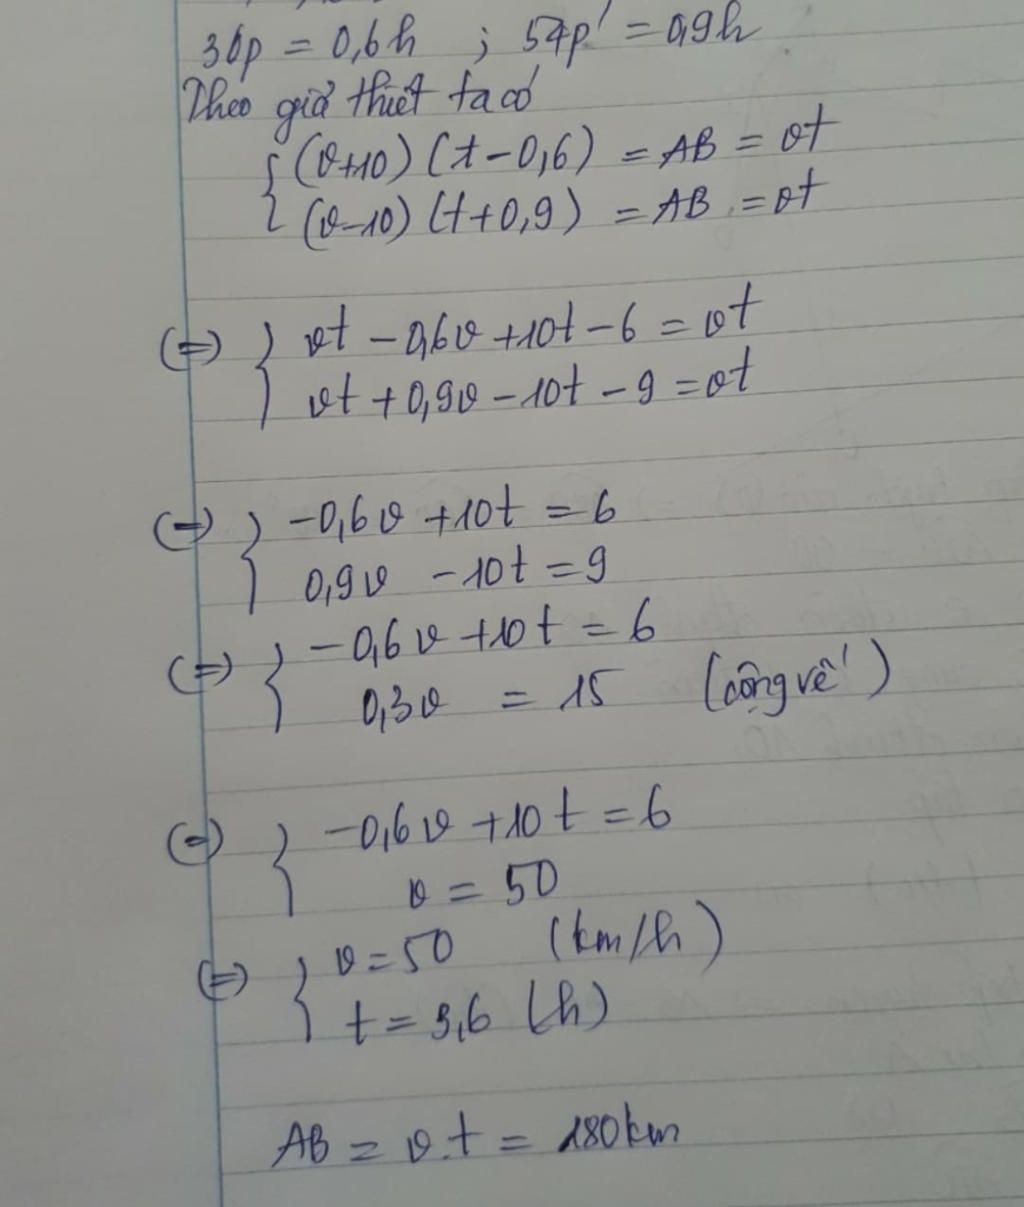 36p = 0,6h ; 54p' = 0,9h
Theo giả thiết ta có
{ (v+10) (t-0,6) = AB = vt
(v-10) (t+0,9) = AB = vt
(=) } vt - 0,6v + 10t - 6 = vt
vt + 0,9v - 10t - 9 = vt
(=) } -0,6v + 10t = 6
0,9v - 10t = 9
(=) } -0,6v + 10t = 6
0,3v = 15 (cộng vế)
(=) } -0,6v + 10t = 6
v = 50
(=) } v = 50 (km/h)
t = 3,6 (h)
AB = v.t = 180km